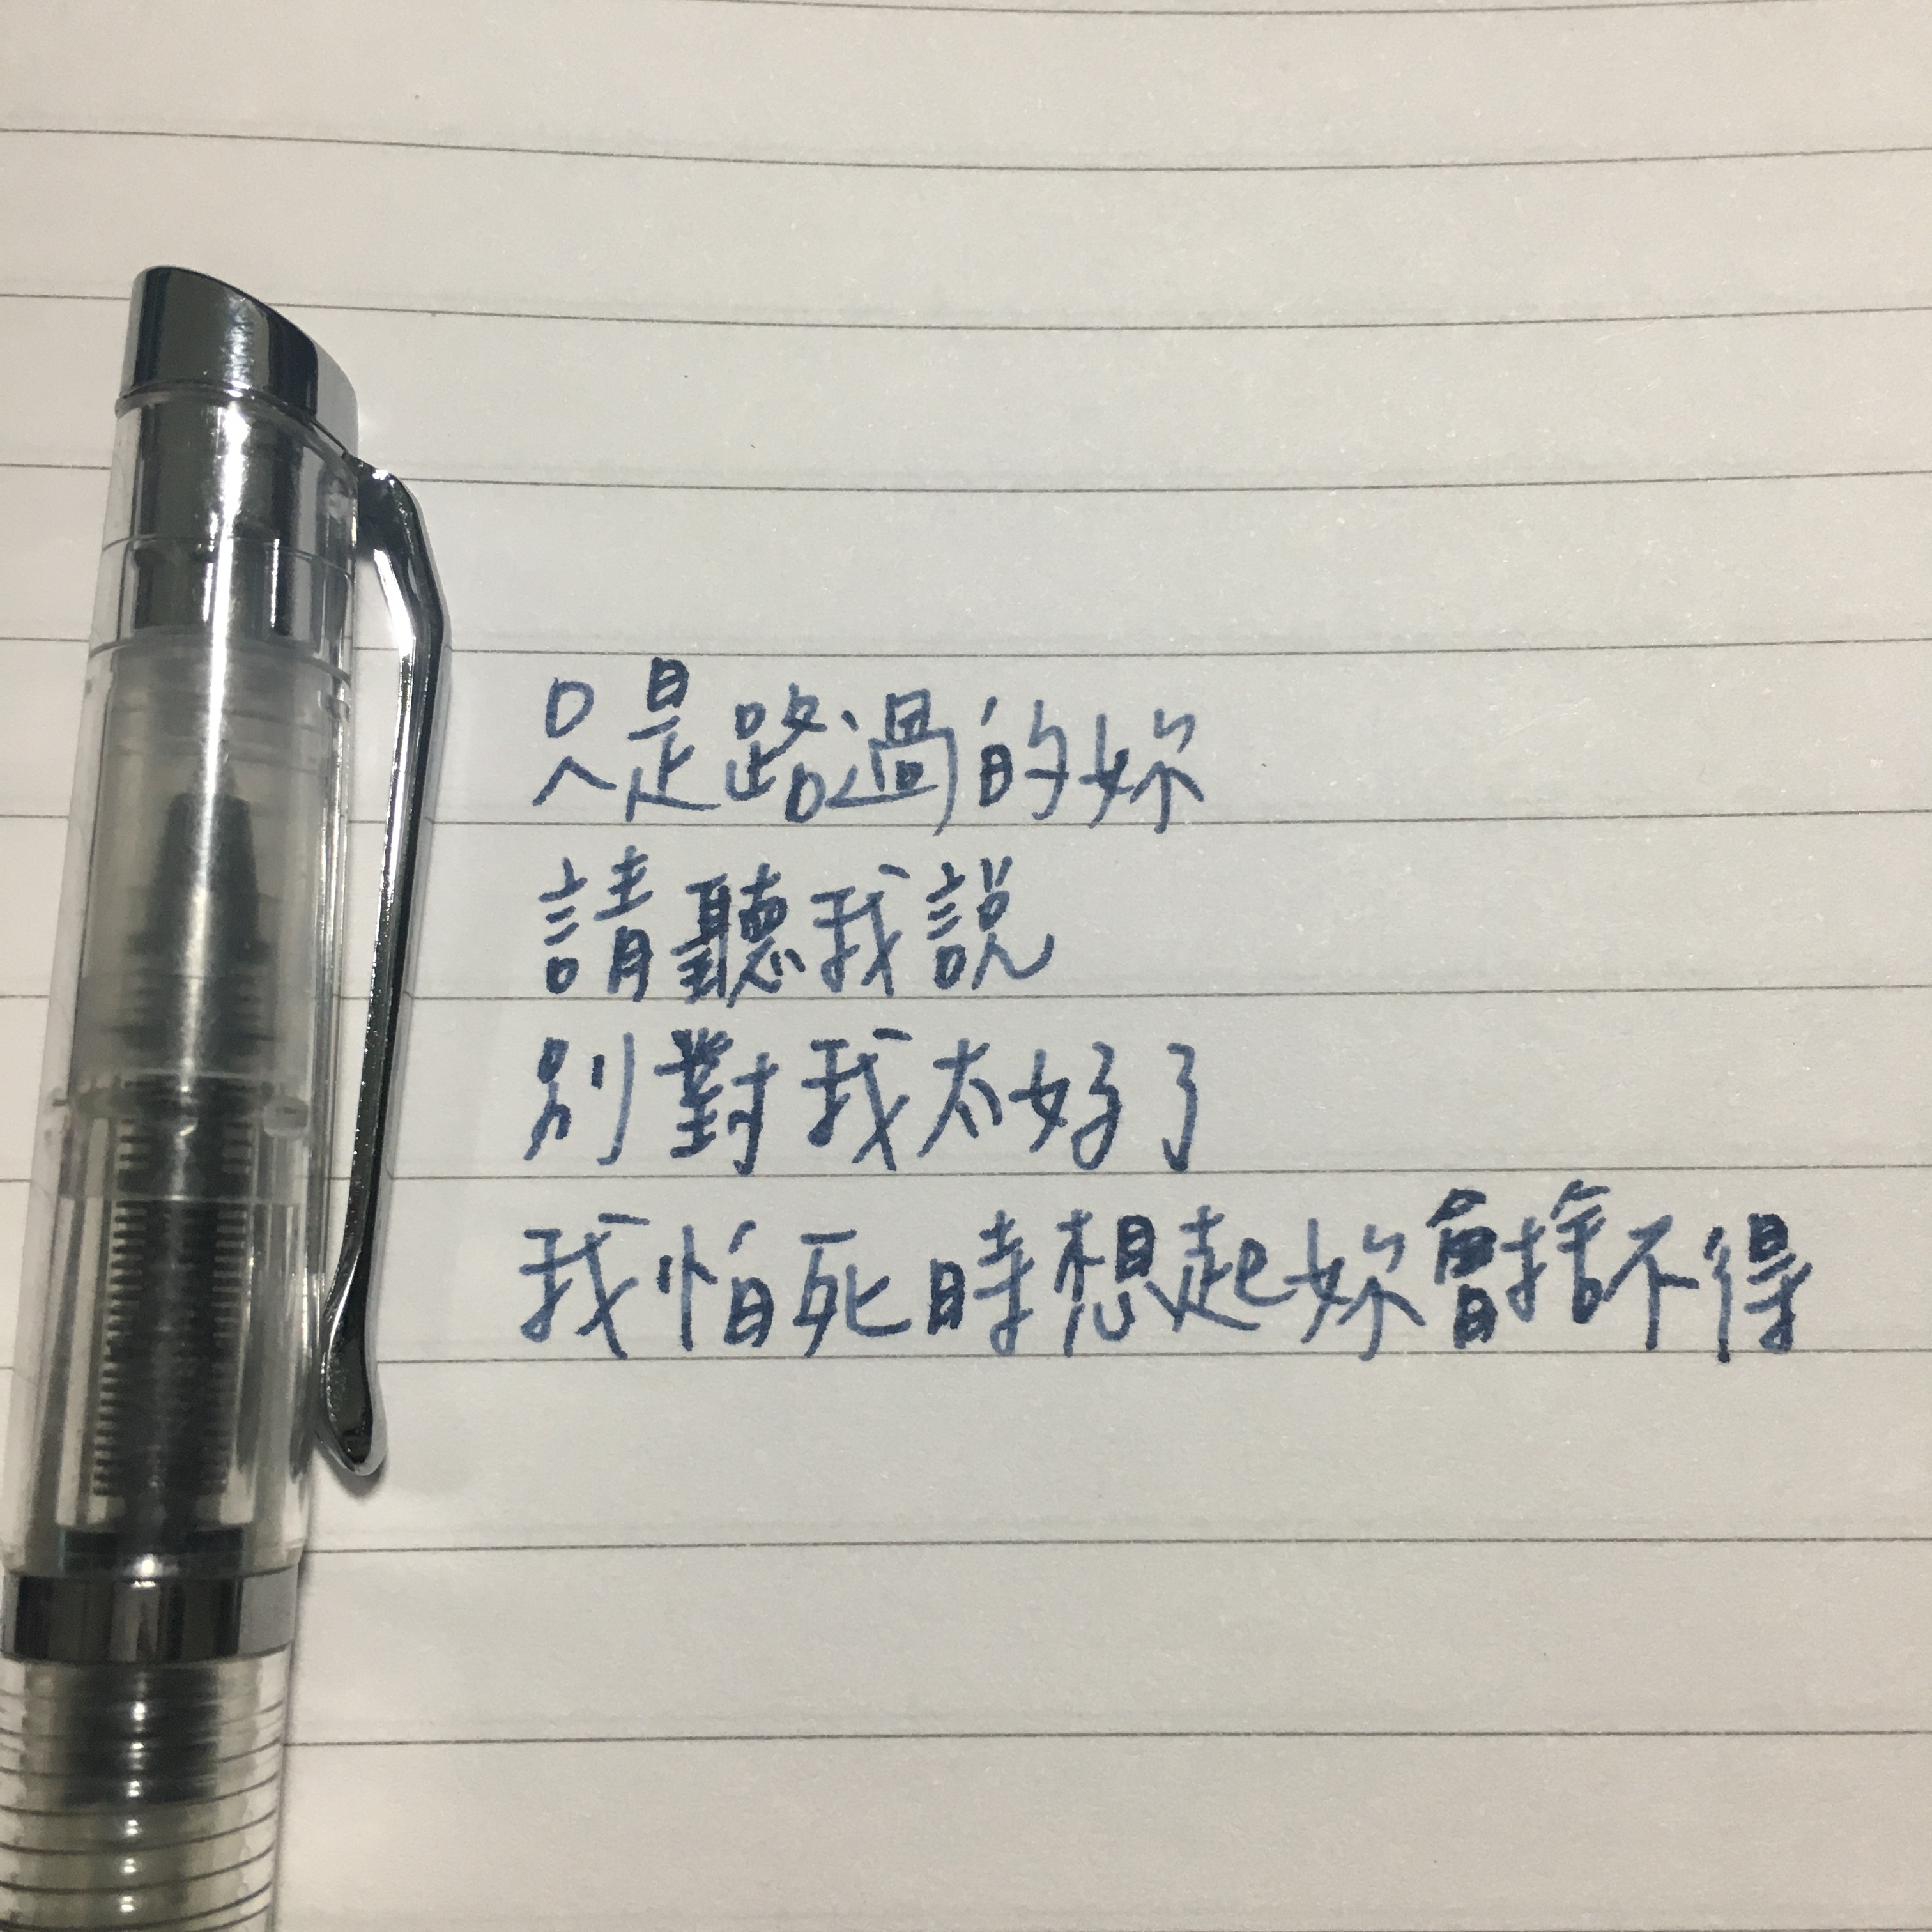 只是路過的妳
請聽我說
別對我太好了
我怕死時想起妳會捨不得